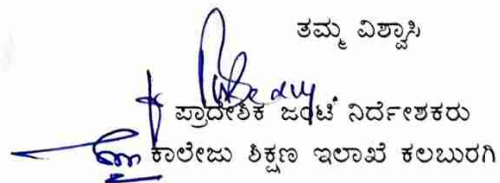 ತಮ್ಮ ವಿಶ್ವಾಸಿ
ಪ್ರಾದೇಶಿಕ ಜಂಟಿ ನಿರ್ದೇಶಕರು
ಕಾಲೇಜು ಶಿಕ್ಷಣ ಇಲಾಖೆ ಕಲಬುರಗಿ